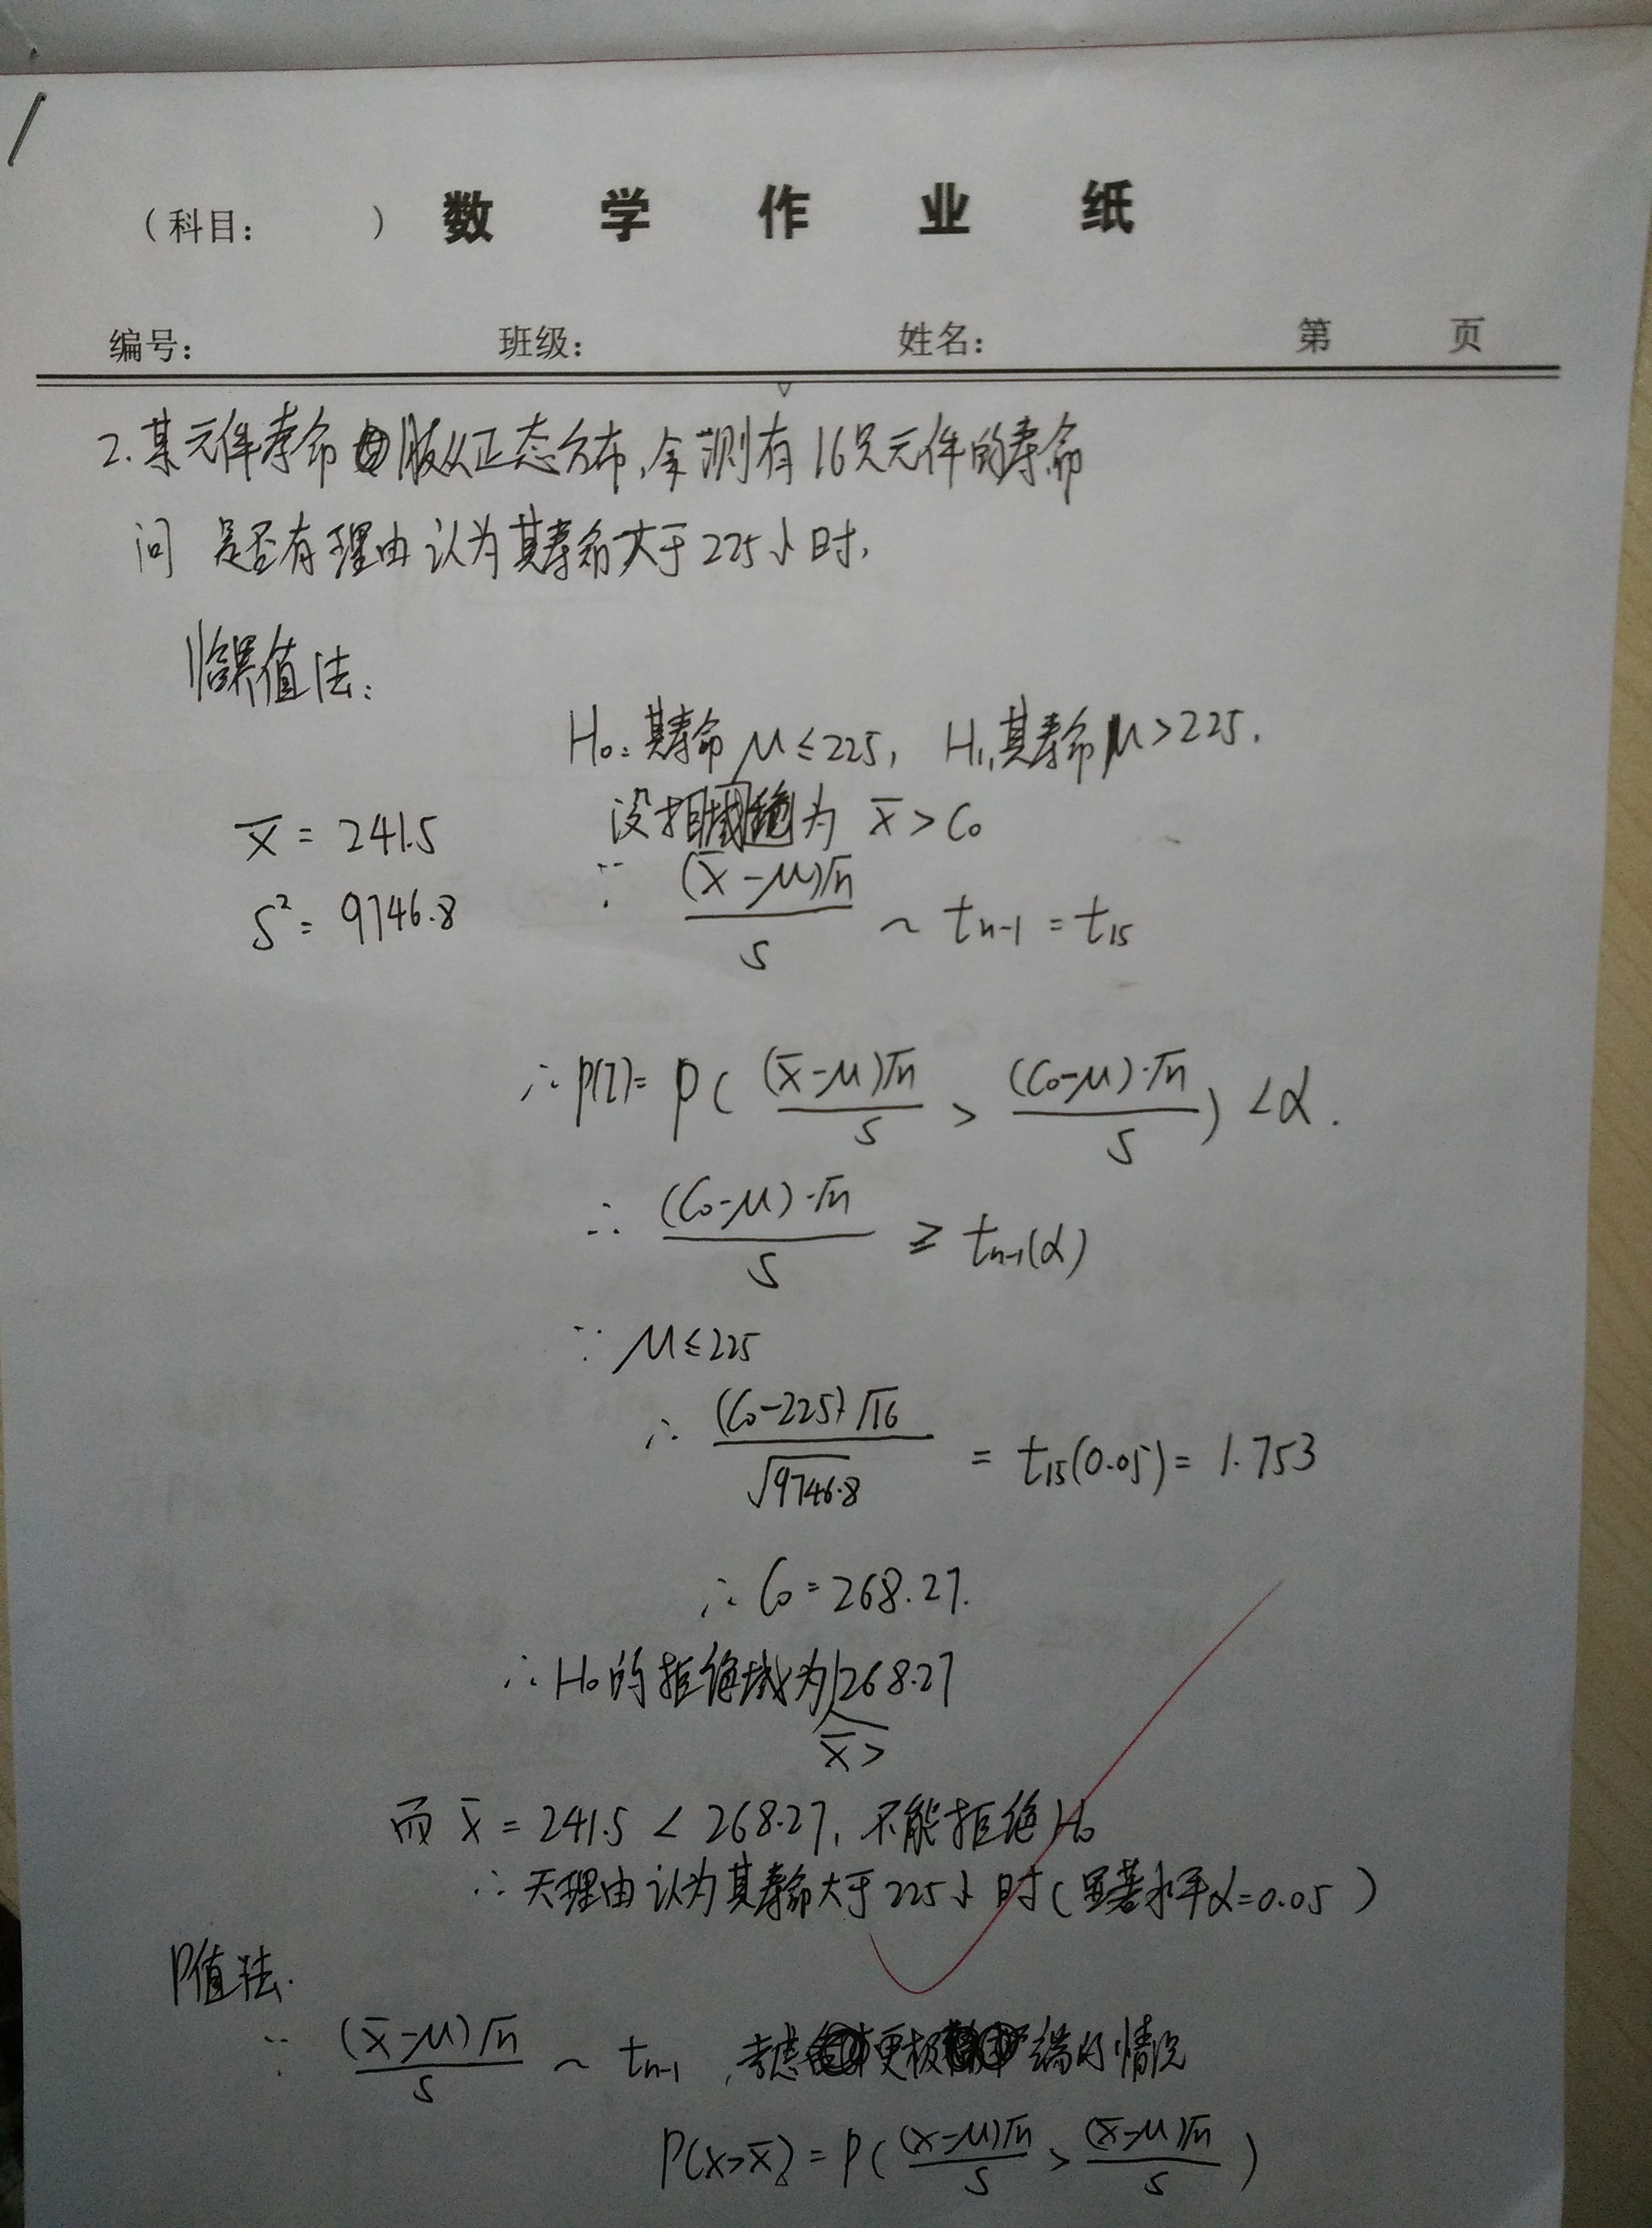 （科目：　　　） 数 学 作 业 纸
编号：　　班级：　　姓名：　　第　　页
2. 某元件寿命服从正态分布,今测有16只元件的寿命
问 是否有理由认为其寿命大于225小时,
临界值法:
H₀: 其寿命 μ≤225, H₁,其寿命μ>225.
设拒绝域为 x̄ > C₀
x̄ = 241.5
S² = 9746.8
∵ (x̄-μ)√n / S ~ tₙ₋₁ = t₁₅
∴ P(I) = P( (x̄-μ)√n / S > (C₀-μ)·√n / S ) < α.
∴ (C₀-μ)·√n / S ≥ tₙ₋₁(α)
∵ μ≤225
∴ (C₀-225)√16 / √9746.8 = t₁₅(0.05) = 1.753
∴ C₀ = 268.27.
∴ H₀的拒绝域为 x̄> 268.27
而 x̄ = 241.5 < 268.27, 不能拒绝H₀
∴ 无理由认为其寿命大于225小时(显著水平α=0.05)
P值法.
∵ (x̄-μ)√n / S ~ tₙ₋₁ , 考虑更极端的情况
P(x>x̄) = P( (x-μ)√n / S > (x̄-μ)√n / S )